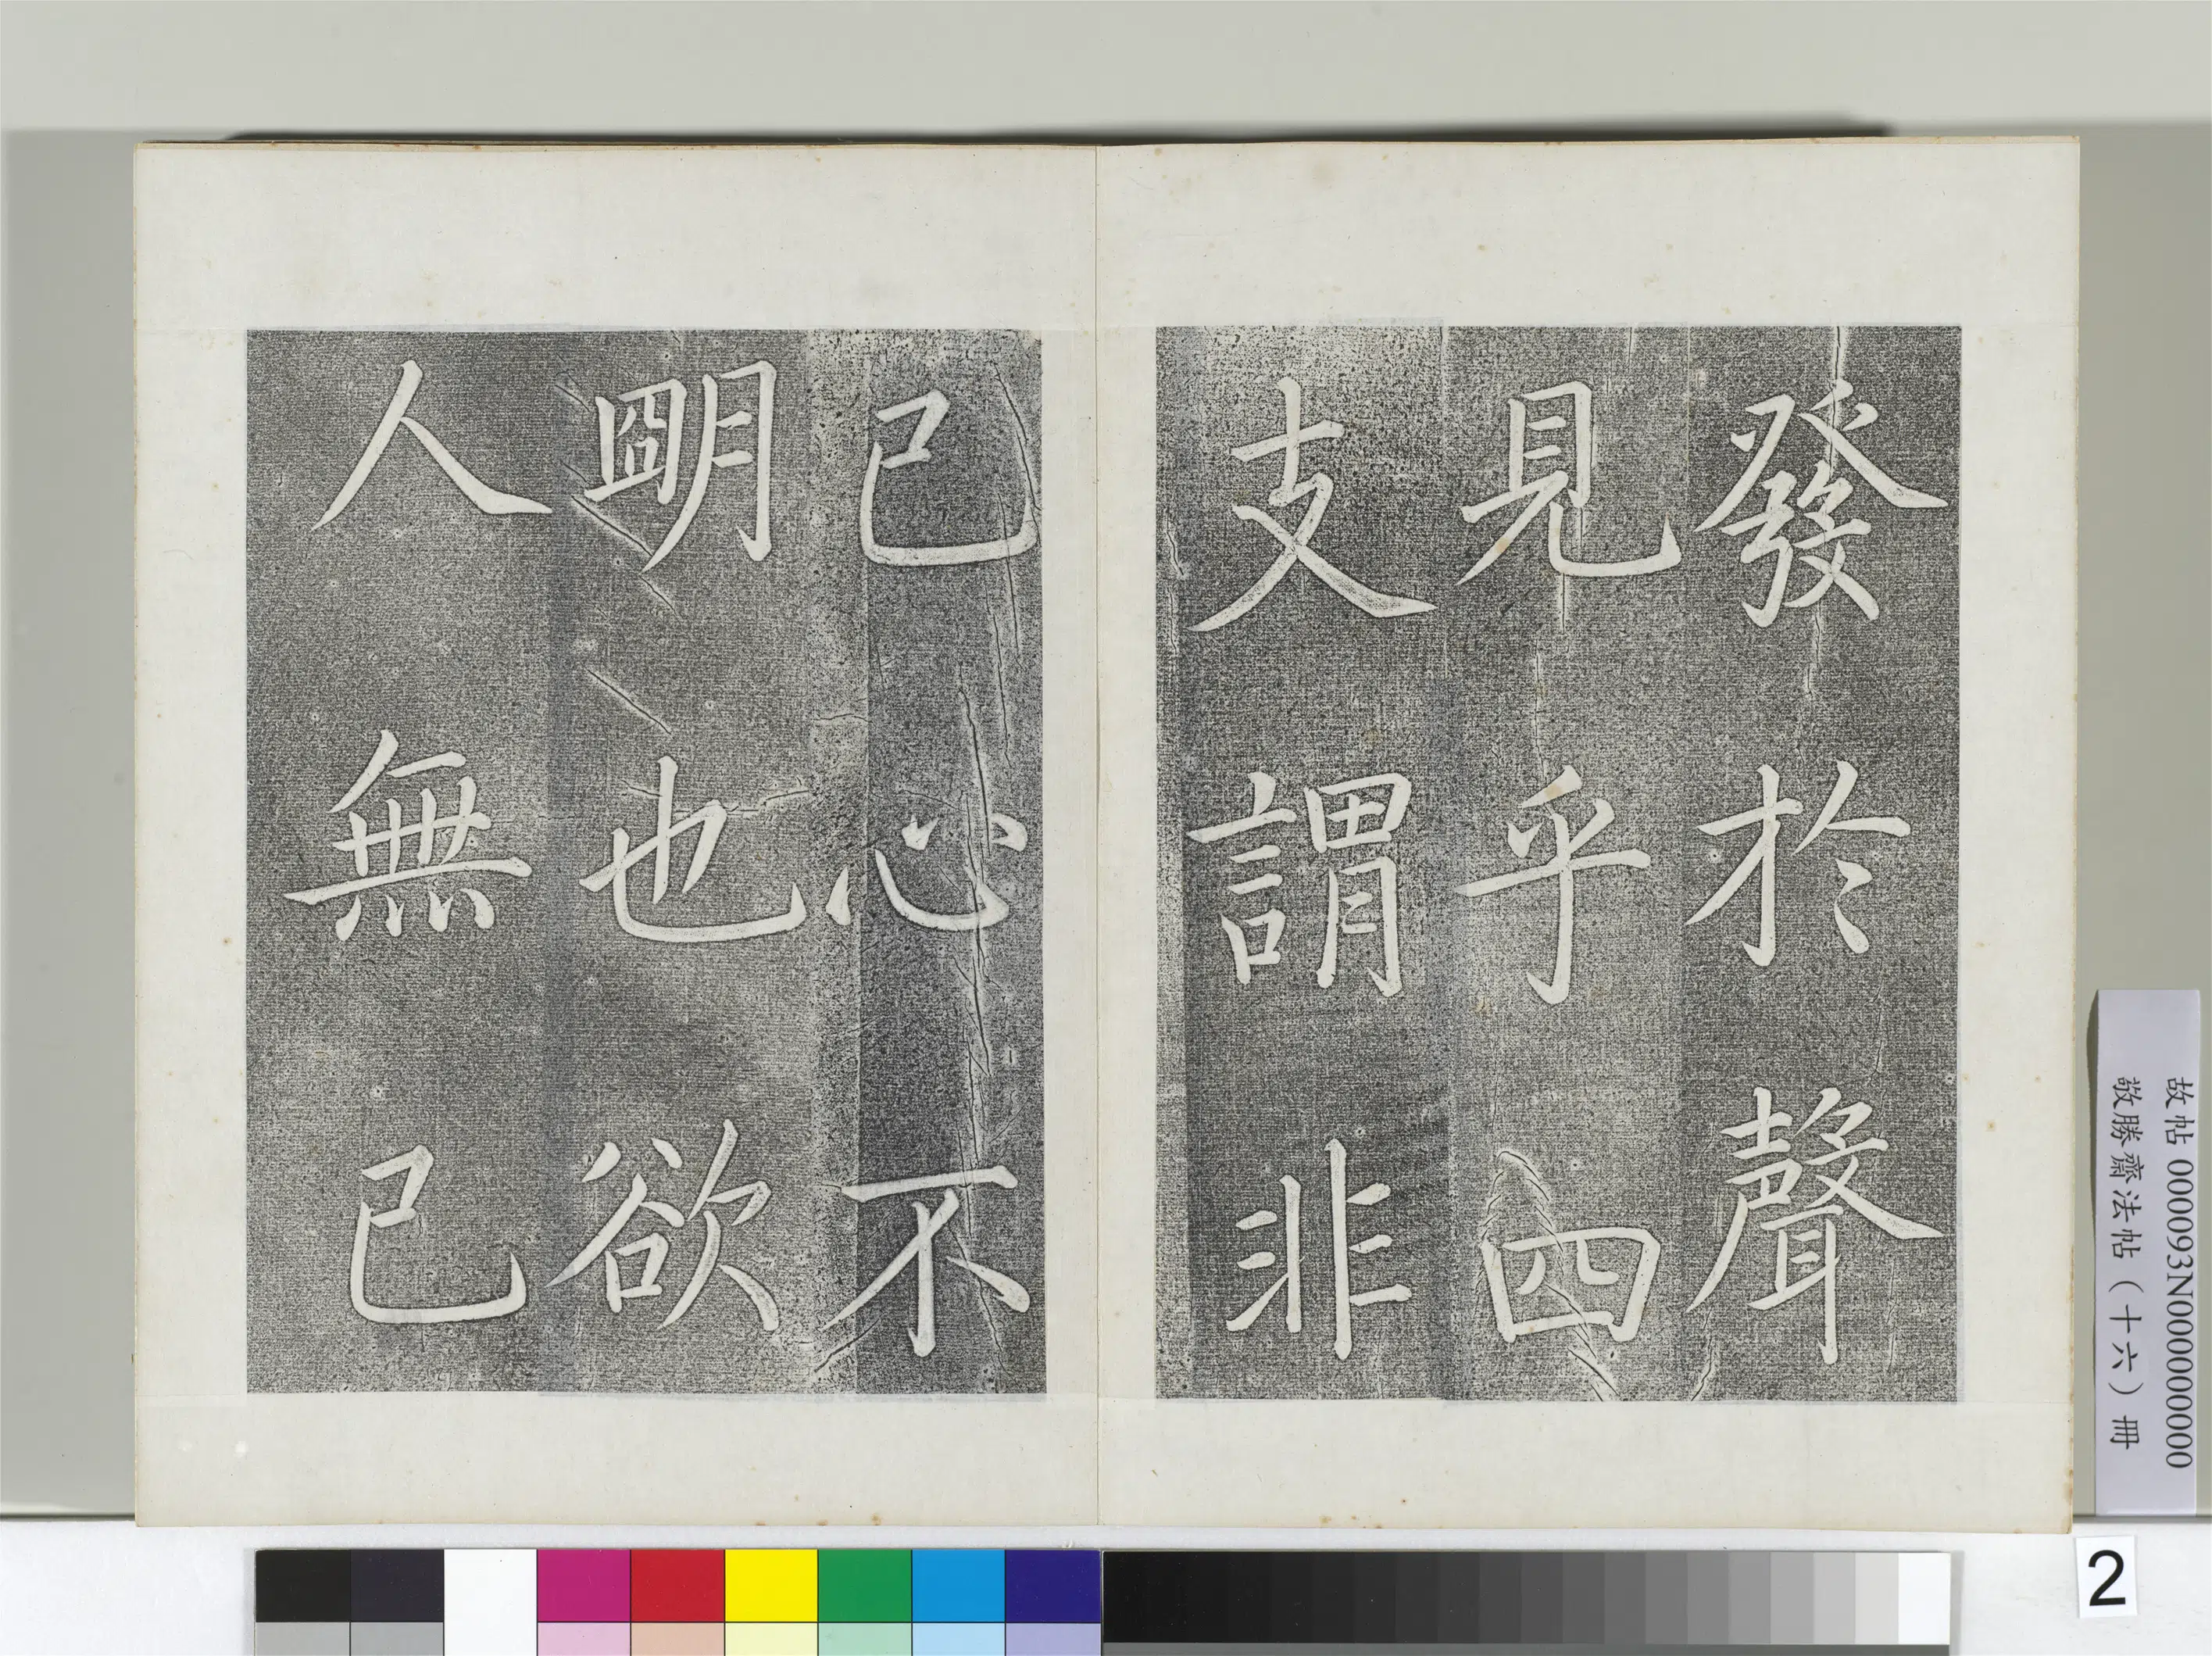 發於聲
見乎四
支謂非
己心不
朙也欲
人無己
故帖 000093N000000000
敬勝齋法帖（十六）冊
2